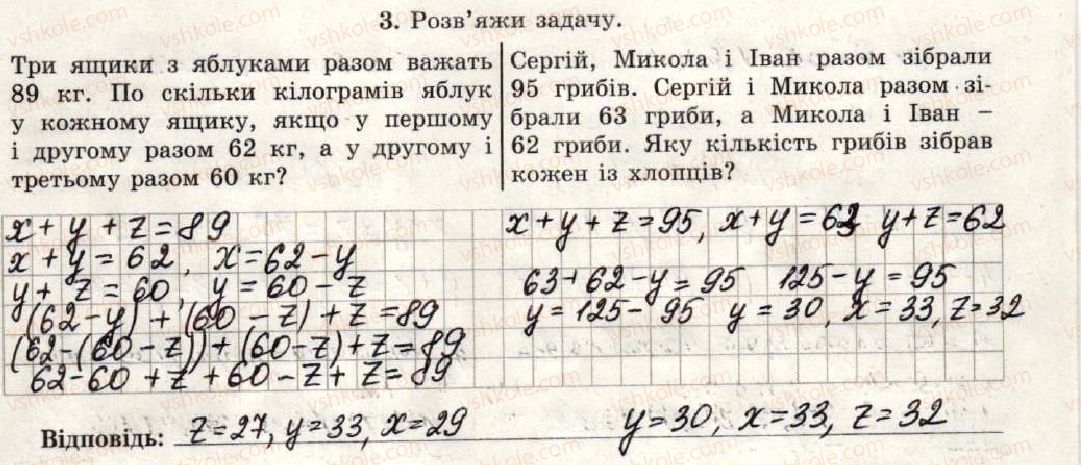 3. Розв'яжи задачу.
Три ящики з яблуками разом важать
89 кг. По скільки кілограмів яблук
у кожному ящику, якщо у першому
і другому разом 62 кг, а у другому і
третьому разом 60 кг?
Сергій, Микола і Іван разом зібрали
95 грибів. Сергій і Микола разом зі-
брали 63 гриби, а Микола і Іван –
62 гриби. Яку кількість грибів зібрав
кожен із хлопців?
x + y + z = 89
x + y = 62, x = 62 - y
y + z = 60, y = 60 - z
(62 - y) + (60 - z) + z = 89
(62 - (60 - z)) + (60 - z) + z = 89
62 - 60 + z + 60 - z + z = 89
x + y + z = 95, x + y = 63 y + z = 62
63 + 62 - y = 95 125 - y = 95
y = 125 - 95 y = 30, x = 33, z = 32
Відповідь: z = 27, y = 33, x = 29
y = 30, x = 33, z = 32